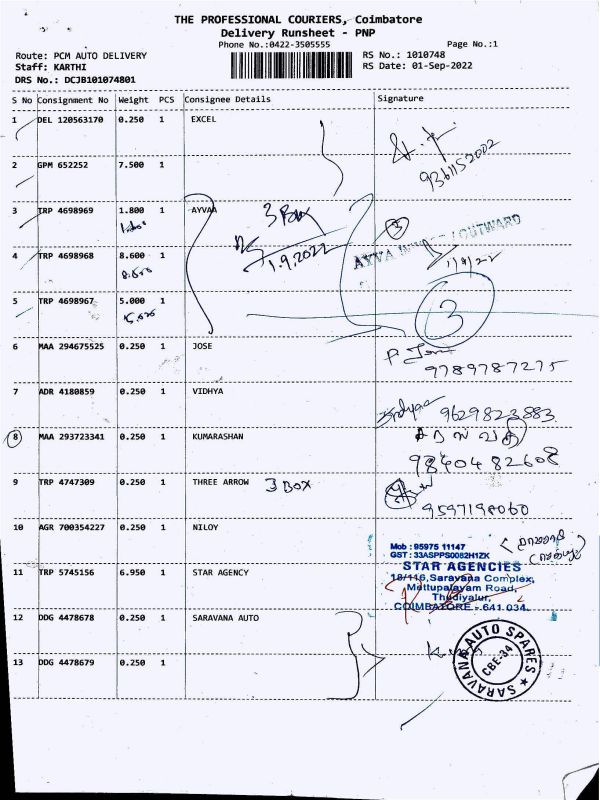 THE PROFESSIONAL COURIERS, Coimbatore
Delivery Runsheet - PNP
Phone No.:0422-3505555
Page No.:1
Route: PCM AUTO DELIVERY
RS No.: 1010748
Staff: KARTHI
RS Date: 01-Sep-2022
DRS No.: DCJB101074801
S No Consignment No Weight PCS Consignee Details Signature
1 DEL 120563170 0.250 1 EXCEL
9361152002
2 GPM 652252 7.500 1
3 TRP 4698969 1.800 1 AYVAA 3 Box
3
AYVA INWARD / OUTWARD
4 TRP 4698968 8.600 1 1.9.2022 1/9/22
8.600
5 TRP 4698967 5.000 1
3
6 MAA 294675525 0.250 1 JOSE
9789787275
7 ADR 4180859 0.250 1 VIDHYA
9629823883
8 MAA 293723341 0.250 1 KUMARASHAN
சரஸ்வதி
9840482608
9 TRP 4747309 0.250 1 THREE ARROW 3 BOX
9597198060
10 AGR 700354227 0.250 1 NILOY
Mob : 95975 11147
GST : 33ASPPS0082H1ZK
11 TRP 5745156 6.950 1 STAR AGENCY
STAR AGENCIES
18/116, Saravana Complex,
Mettupalayam Road,
Thudiyalur,
COIMBATORE - 641 034.
12 DDG 4478678 0.250 1 SARAVANA AUTO
13 DDG 4478679 0.250 1
SARAVANA AUTO SPARES
CBE-34